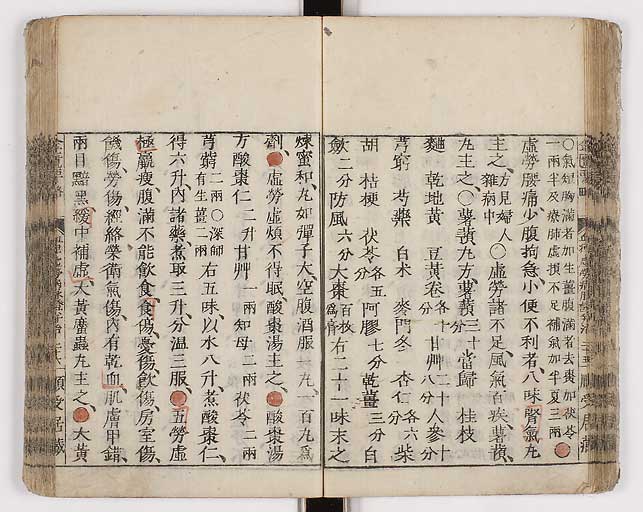 〇氣短胸滿者加生薑腹滿者去棗加茯苓
一兩半及療肺虛損不足補氣加半夏三兩
虛勞腰痛少腹拘急小便不利者八味腎氣丸
主之方見婦人雜病中〇虛勞諸不足風氣百疾薯蕷
丸主之〇薯蕷丸方薯蕷三十當歸 桂枝
麯 乾地黃 豆黃卷各十分甘艸二十八分人參十分
芎窮 芍藥 白朮 麥門冬 杏仁各六分柴
胡 桔梗 茯苓各五分阿膠七分乾薑三分白
斂二分防風六分大棗百枚右二十一味末之
煉蜜和丸如彈子大空腹酒服一丸一百丸爲
劑虛勞虛煩不得眠酸棗湯主之酸棗湯
方酸棗仁二升甘艸一兩知母二兩茯苓二兩
芎窮二兩〇深師有生薑二兩右五味以水八升煮酸棗仁
得六升內諸藥煮取三升分溫三服五勞虛
極羸瘦腹滿不能飲食食傷憂傷飲傷房室傷
饑傷勞傷經絡榮衛氣傷內有乾血肌膚甲錯
兩目黯黑緩中補虛大黃䗪蟲丸主之大黃